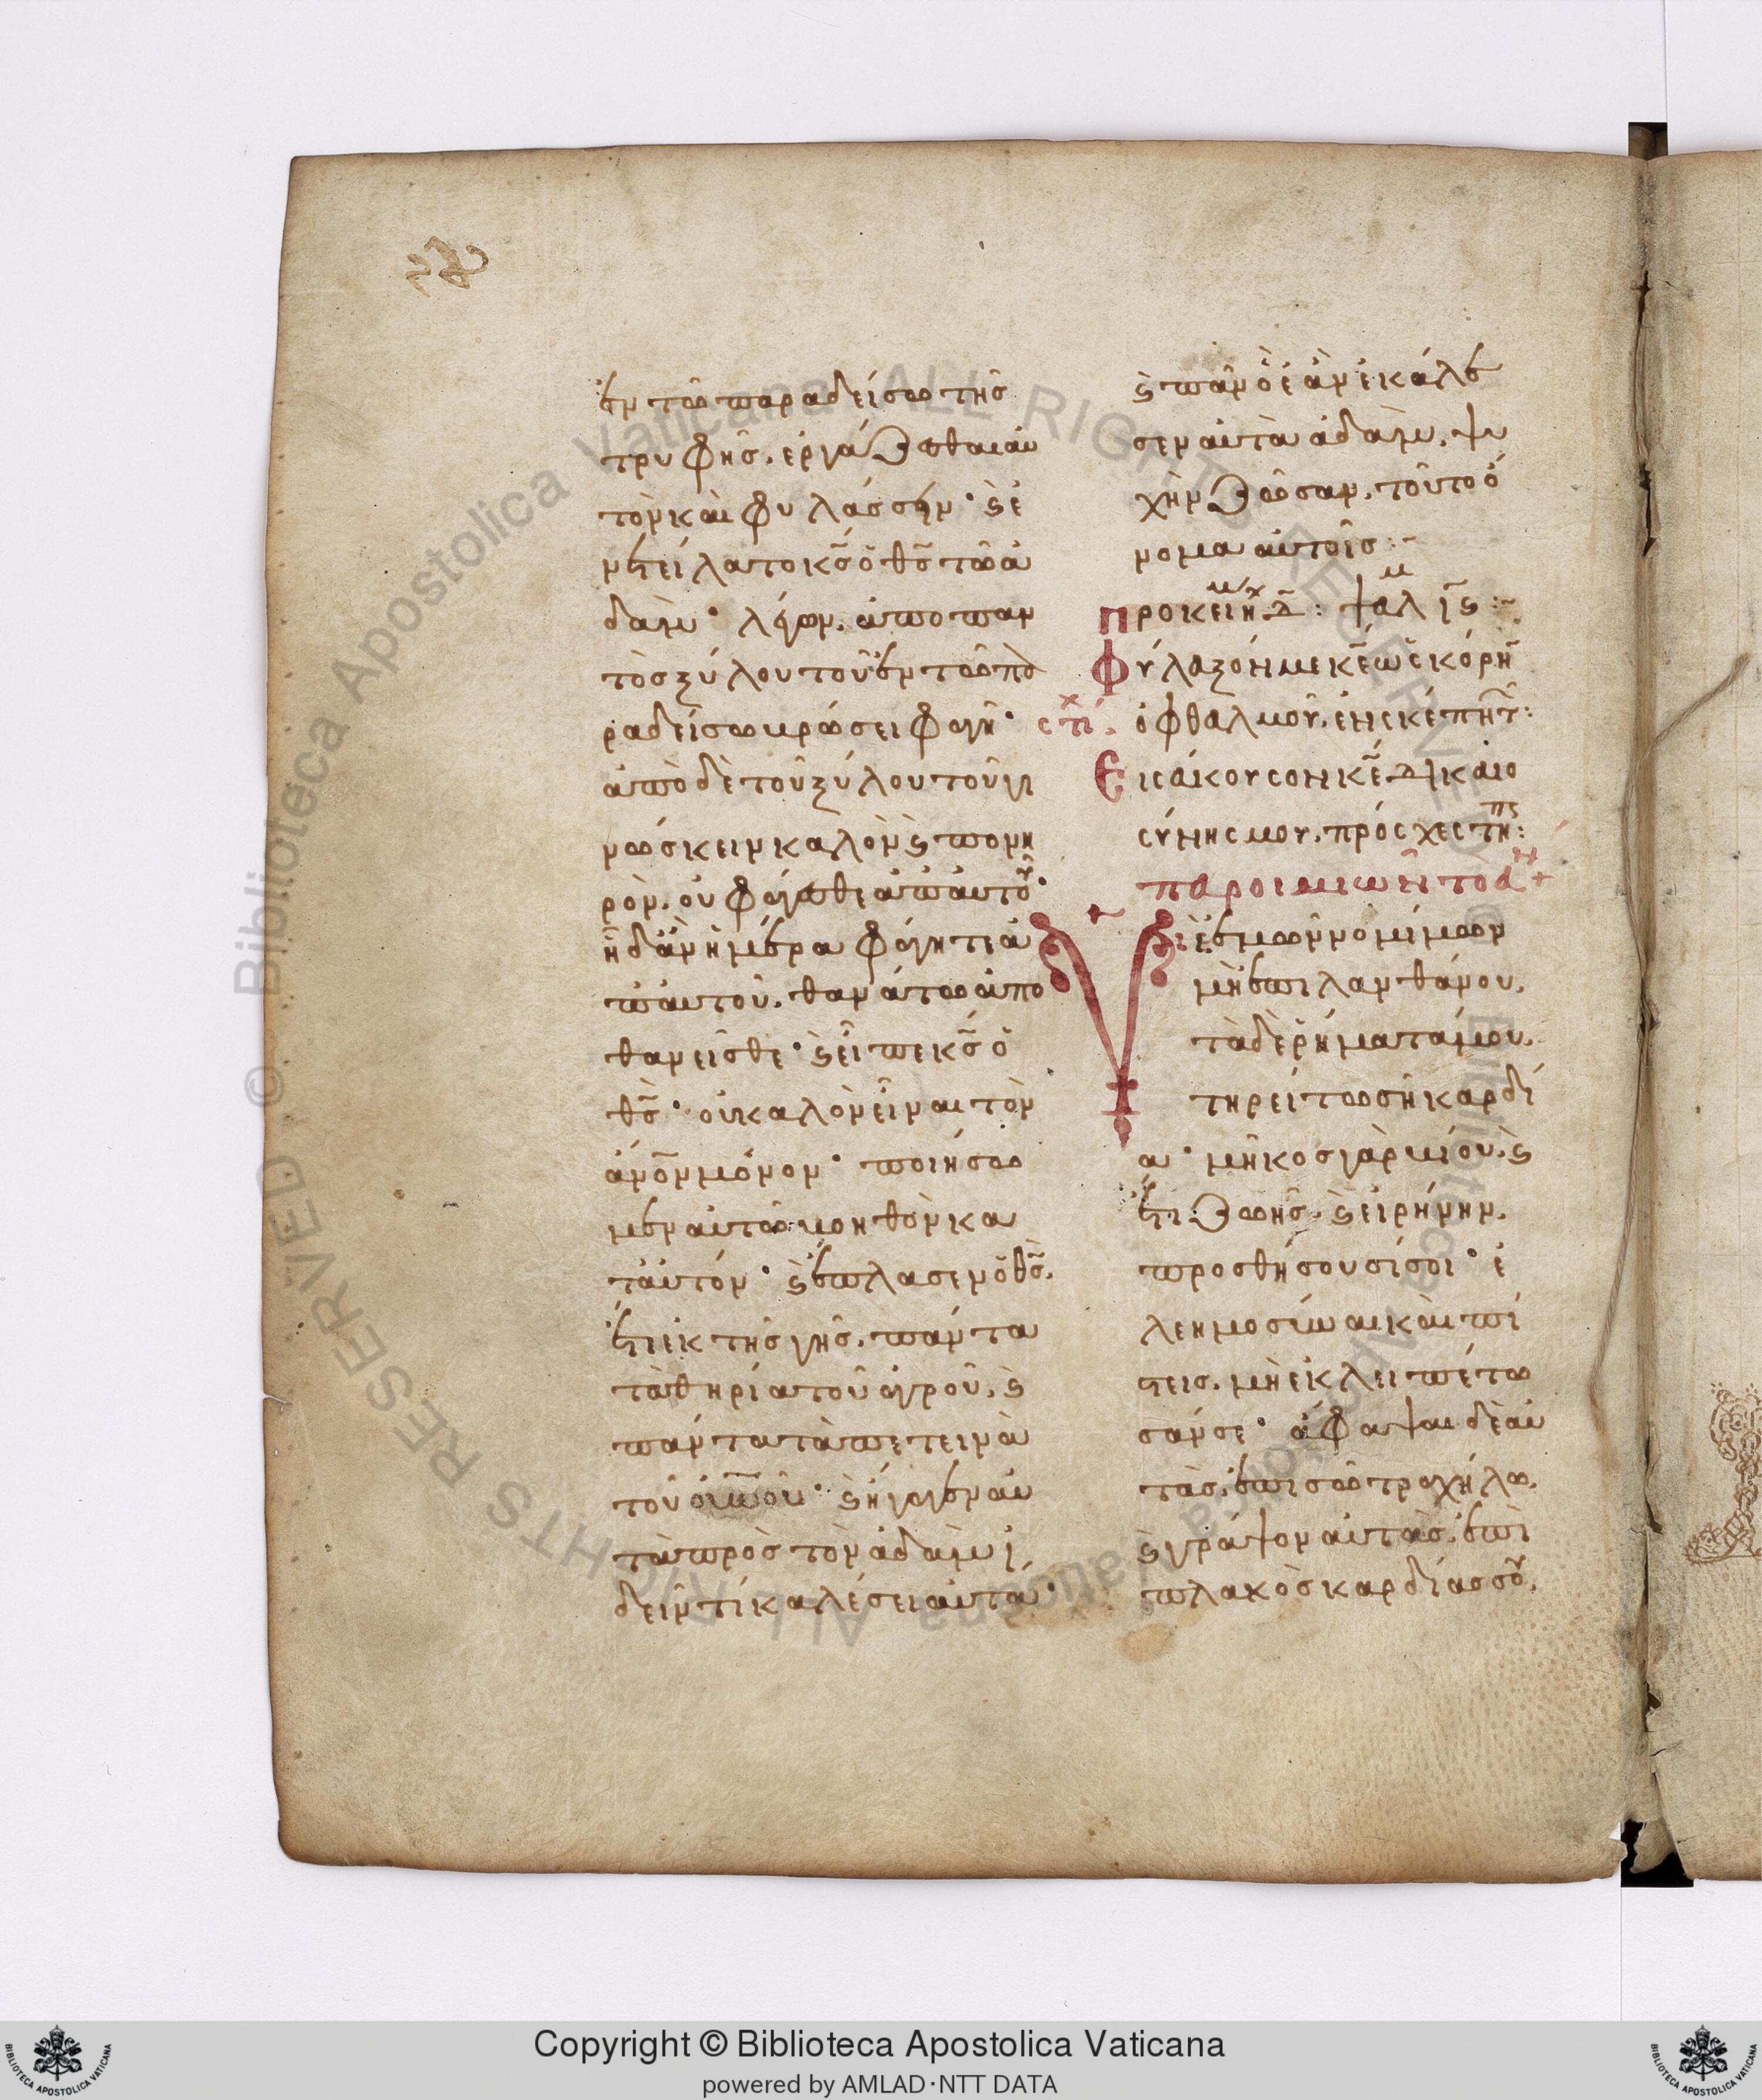 ἐν τῶ παραδείσω τῆσ
τρυφῆσ. ἐργάζεσθαι αὐ
τὸν καὶ φυλάσσειν· ϗ ἐ
νετείλατο κ̅σ̅ ὁ θ̅σ̅ τῶ ἀ
δὰμ· λέγων. ἀπο παν
τὸσ ξύλου τοῦ ἐν τῶ πα
ραδείσω βρώσει φαγῆ·
ἀπὸ δὲ τοῦ ξύλου τοῦ γι
νώσκειν καλὸν ϗ πονη
ρὸν. οὐ φάγεσθε ἀπ' αὐτοῦ·
ἧ δἂν ἡμέρα φάγητε ἀ
π' αὐτοῦ. θανάτω ἀπο
θανεῖσθε· ϗ εἶπε κ̅σ̅ ὁ
θ̅σ̅· οὐ καλὸν εἶναι τὸν
ἄν̅ο̅ν̅ μόνον· ποιήσω
μεν αὐτῶ βοηθὸν κα
τ' αὐτόν· ϗ ἔπλασεν ὁ θ̅σ̅.
ἔτι ἐκ τῆσ γῆσ. πάντα
τὰ θηρία τοῦ ἀγροῦ. ϗ
πάντα τὰ πετεινὰ
τοῦ οὐ̅ν̅οῦ· ϗ ἤγαγεν αὐ
τὰ πρὸσ τὸν ἀδὰμ ἰ
δεῖν τί καλέσει αὐτά·
ϗ πᾶν ὃ ἐὰν ἐκάλε
σεν αὐτὰ ἀδὰμ. ψυ
χὴν ζῶσαν. τοῦτο ὄ
νομα αὐτοῖσ:-
προκείμ η χ δ̅: ψαλμ ις:-
φύλαξόν με κ̅ε̅ ὡς κόρην
στιχ. ὀφθαλμοῦ. ἐν σκέπη τ:
Εἰσάκουσον κ̅ε̅ δικαιο
σύνης μου. πρόσχες τη:
παροιμιῶν τὸ ἀν+
Υἱὲ ἐμῶν νομίμων
μὴ ἐπιλανθάνου.
τὰ δὲ ῥήματά μου.
τηρείτω σὴ καρδί
α· μῆκος γὰρ βίου. ϗ
ἔτη ζωῆσ. ϗ εἰρήνην.
προσθήσουσί σοι· ἐ
λεημοσύναι καὶ πί
στεισ. μὴ ἐκλειπέτω
σάν σε· ἄφαψαι δὲ αὐ
τὰσ. ἐπὶ σῶ τραχήλω.
ϗ γράψον αὐτὰσ. ἐπὶ
πλακὸσ καρδίασ σου.
Copyright © Biblioteca Apostolica Vaticana
powered by AMLAD·NTT DATA